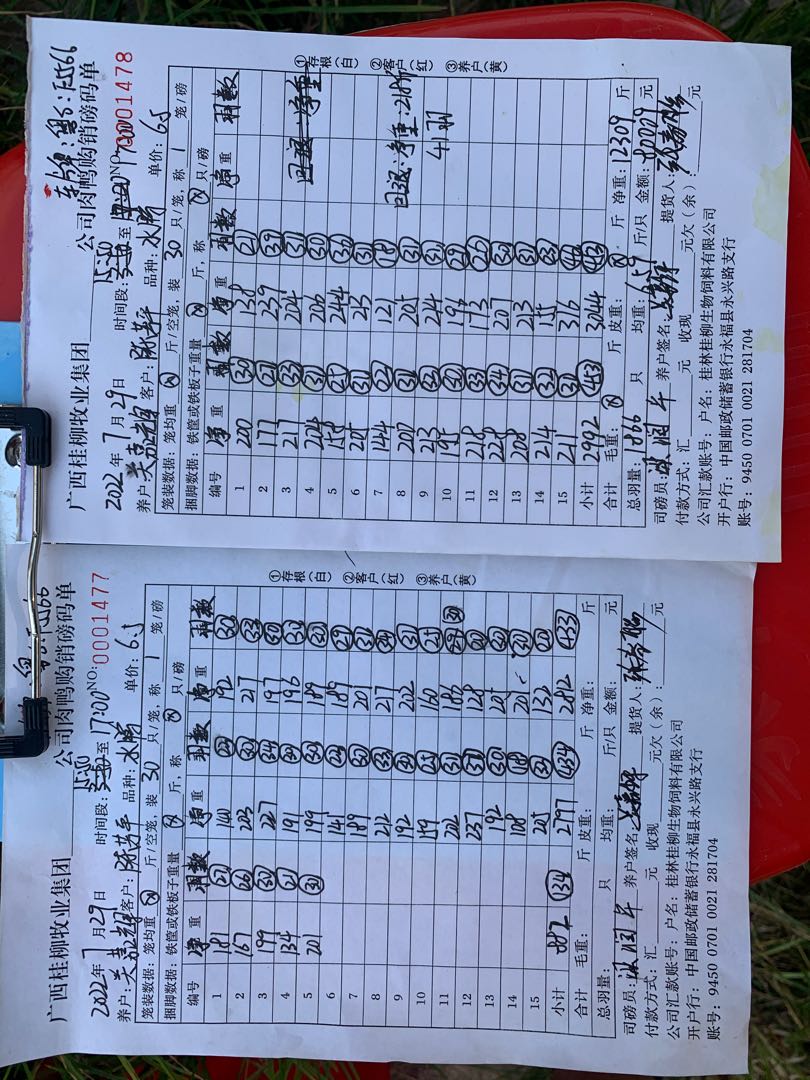 广西桂柳牧业集团 公司肉鸭购销磅码单
2022年7月29日 时间段: 15:50 至 17:00 NO: 0001477
养户: 客户: 品种: 水鸭 单价: 6.5
笼装数据: 笼均重 斤/空笼, 装 30 只/笼, 称 1 笼/磅
捆脚数据: 铁筐或铁板子重量 斤, 称 只/磅
编号 净重 羽数 净重 羽数 净重 羽数
1 181 27 140 192 30
2 167 26 203 30 217 33
3 199 30 227 34 197 30
4 134 21 191 30 196
5 201 30 199 30 189 30
6 141 23 189 29
7 189 30 201
8 212 33 217 34
9 192 30 202 31
10 159 25 160 25
11 202 31 186 29 30
12 237 37 128 20
13 192 30 201 30
14 108 18 201 30
15 205 32 132 20
小计 882 134 2797 434 2812 433
合计 毛重: 斤 皮重: 斤 净重: 斤
总羽量: 只 均重: 斤/只 金额: 元
司磅员: 养户签名: 提货人:
付款方式: 汇 元 收现 元欠(余): 元
公司汇款账号: 户名: 桂林桂柳生物饲料有限公司
开户行: 中国邮政储蓄银行永福县永兴路支行
账号: 9450 0701 0021 281704
①存根(白) ②客户(红) ③养户(黄)
广西桂柳牧业集团 公司肉鸭购销磅码单
2022年7月29日 时间段: 15:50 至 17:00 NO: 0001478
养户: 客户: 品种: 水鸭 单价: 6.5
笼装数据: 笼均重 斤/空笼, 装 30 只/笼, 称 1 笼/磅
捆脚数据: 铁筐或铁板子重量 斤, 称 只/磅
编号 净重 羽数 净重 羽数 净重 羽数
1 200 30 138 21
2 177 27 239 39
3 217 33 204 31
4 204 31 206 30
5 158 25 244
6 205 31 213 31
7 144 22 121 18
8 207 31 205 31
9 213 32 224 31
10 195 30 29
11 218 33 173 26
12 228 34 207 30
13 208 31 213 31
14 214 32 155
15 211 31 316
小计 2992 443 3044
回退: 净重: 218斤
41羽
合计 毛重: 斤 皮重: 斤 净重: 12309 斤
总羽量: 1866 只 均重: 6.59 斤/只 金额: 80009 元
司磅员: 养户签名: 提货人:
付款方式: 汇 元 收现 元欠(余): 元
公司汇款账号: 户名: 桂林桂柳生物饲料有限公司
开户行: 中国邮政储蓄银行永福县永兴路支行
账号: 9450 0701 0021 281704
①存根(白) ②客户(红) ③养户(黄)